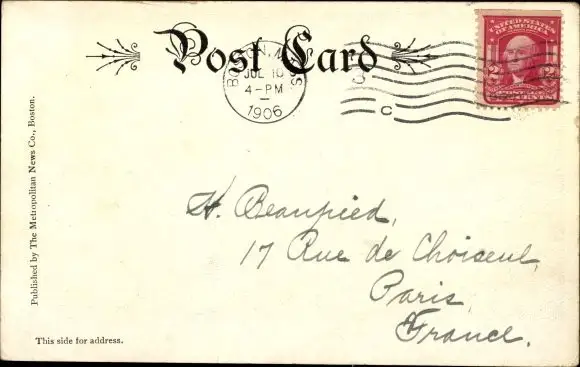 Post Card
BOSTON, MASS
JUL 10
4-PM
1906
C
UNITED STATES
OF AMERICA
2 2
POSTAGE
CENTS
H. Beaupied,
17 Rue de Choiseul,
Paris,
France.
Published by The Metropolitan News Co., Boston.
This side for address.